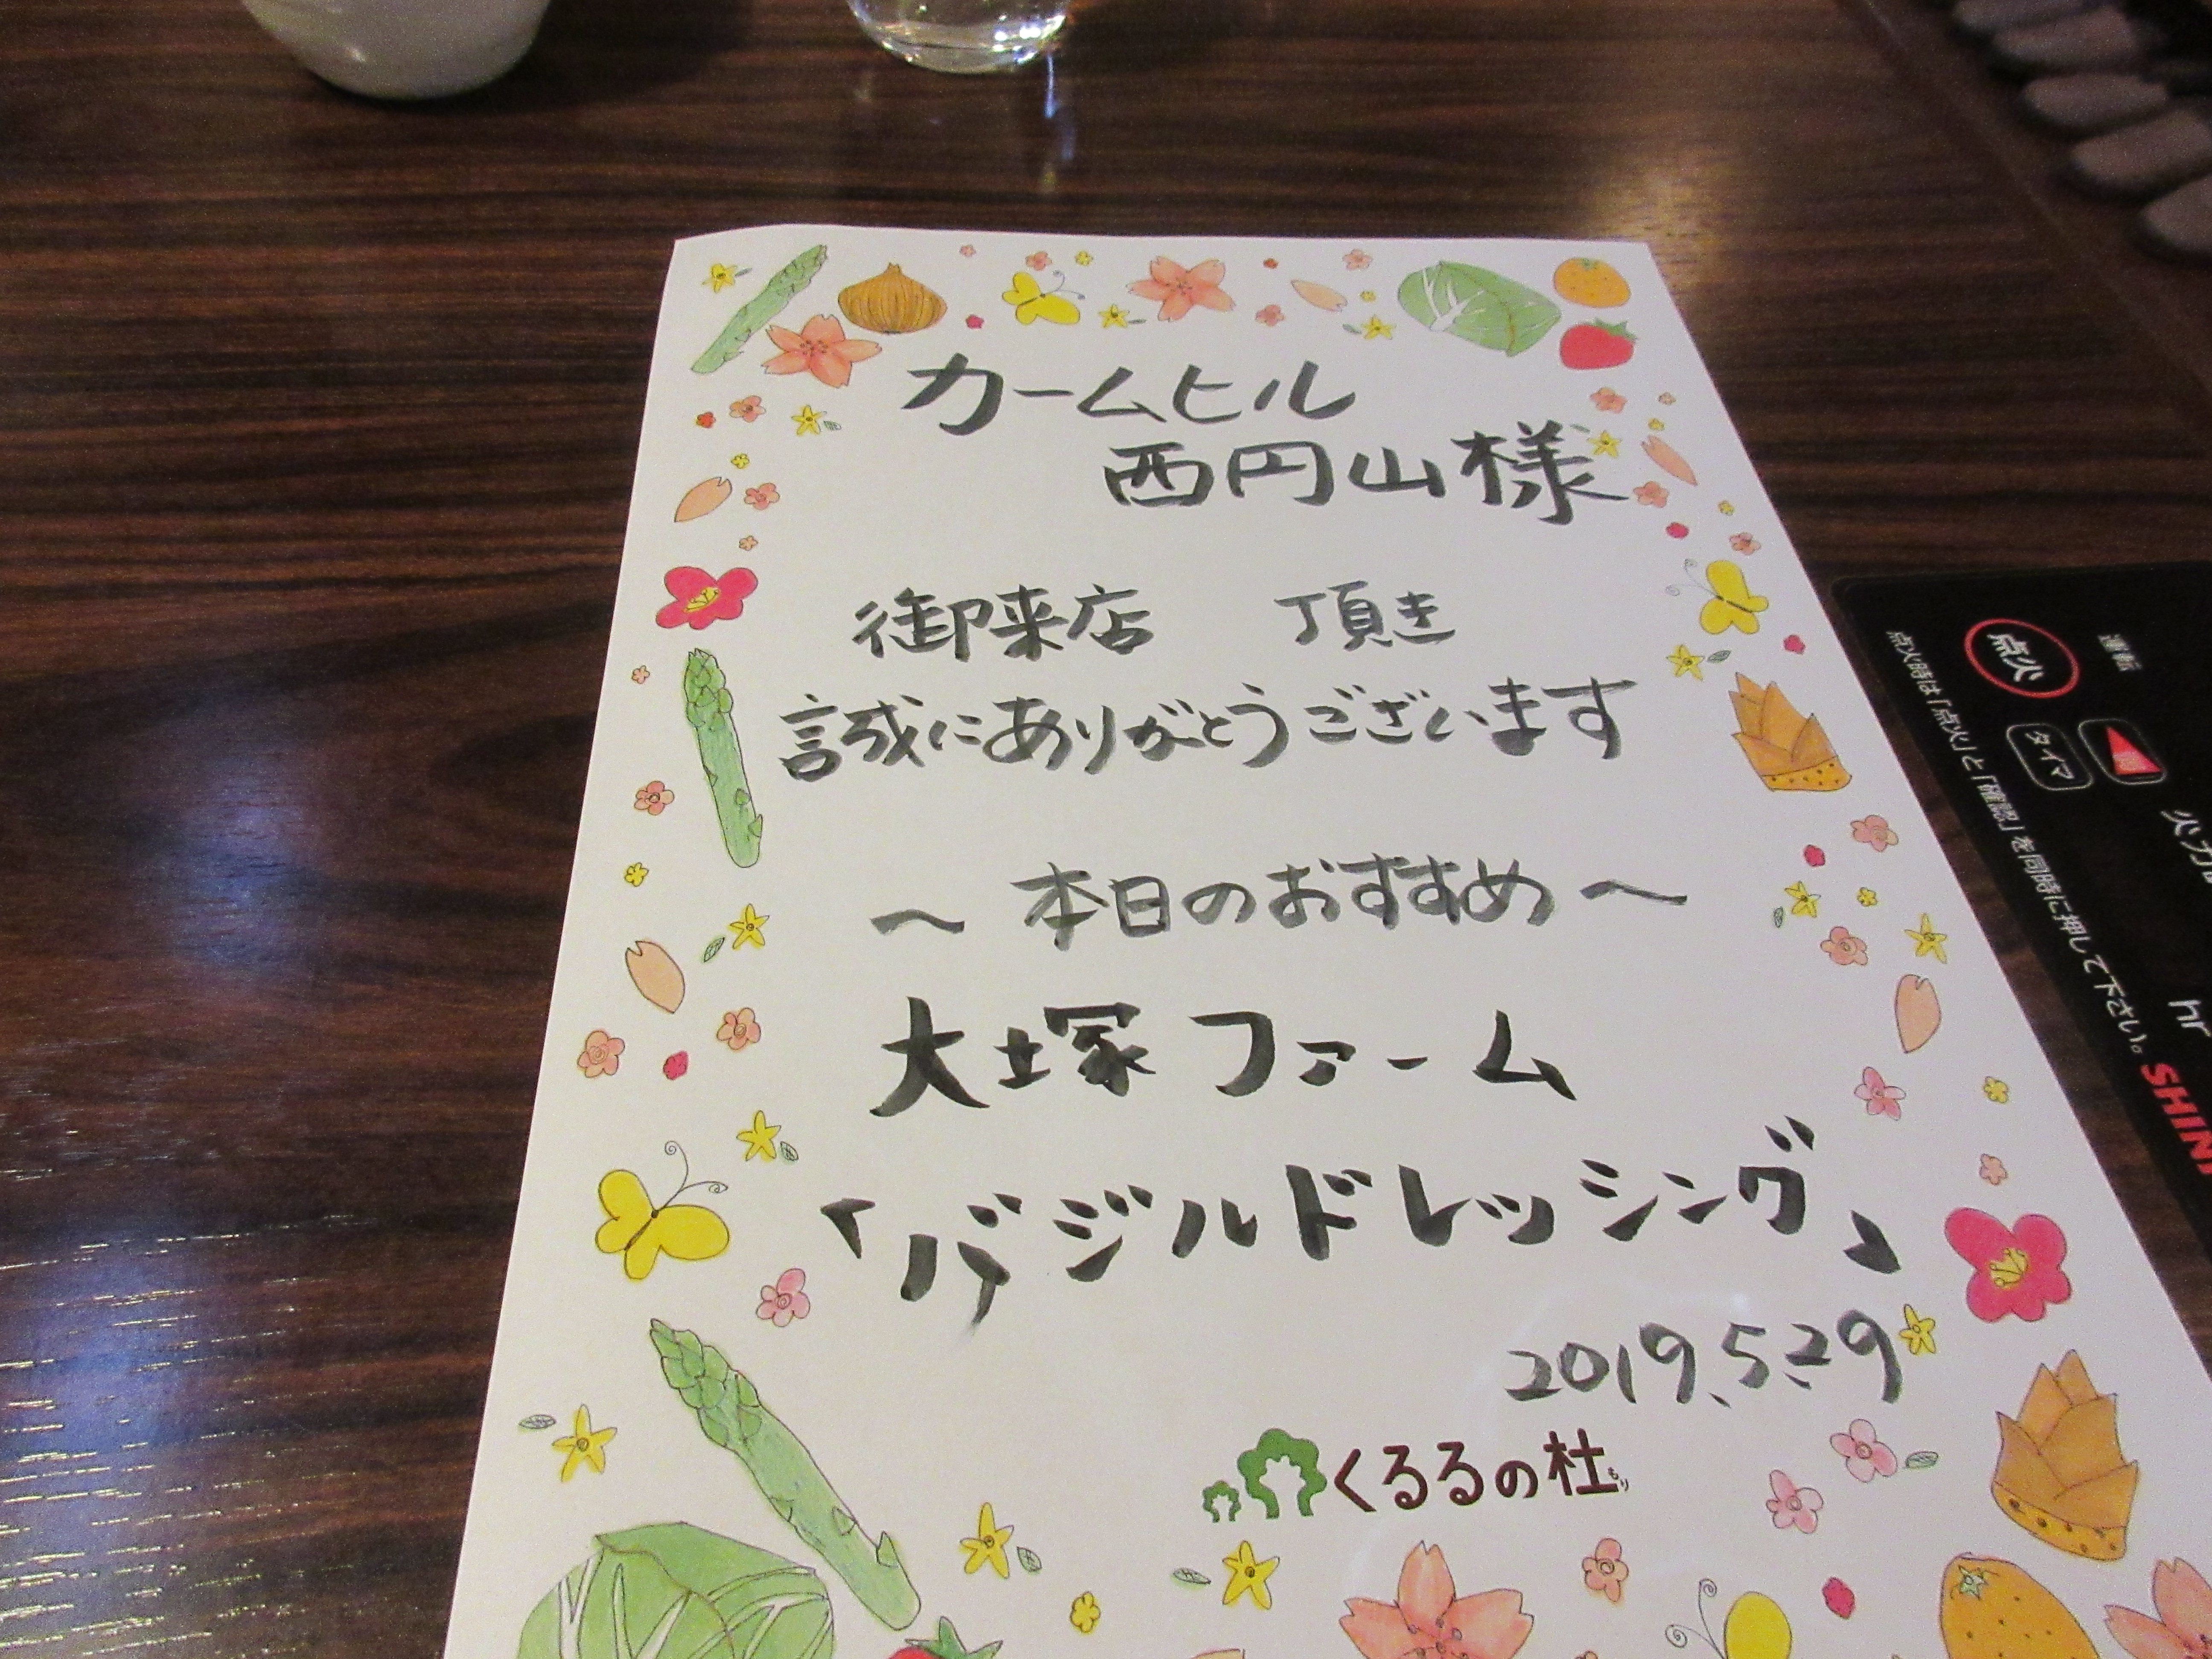 カームヒル
西円山様
御来店 頂き
誠にありがとうございます
〜 本日のおすすめ 〜
大塚ファーム
「バジルドレッシング」
2019.5.29
くるるの杜
もり
運転
点火
タイマ
火力
hr
点火時は「点火」と「確認」を同時に押して下さい。